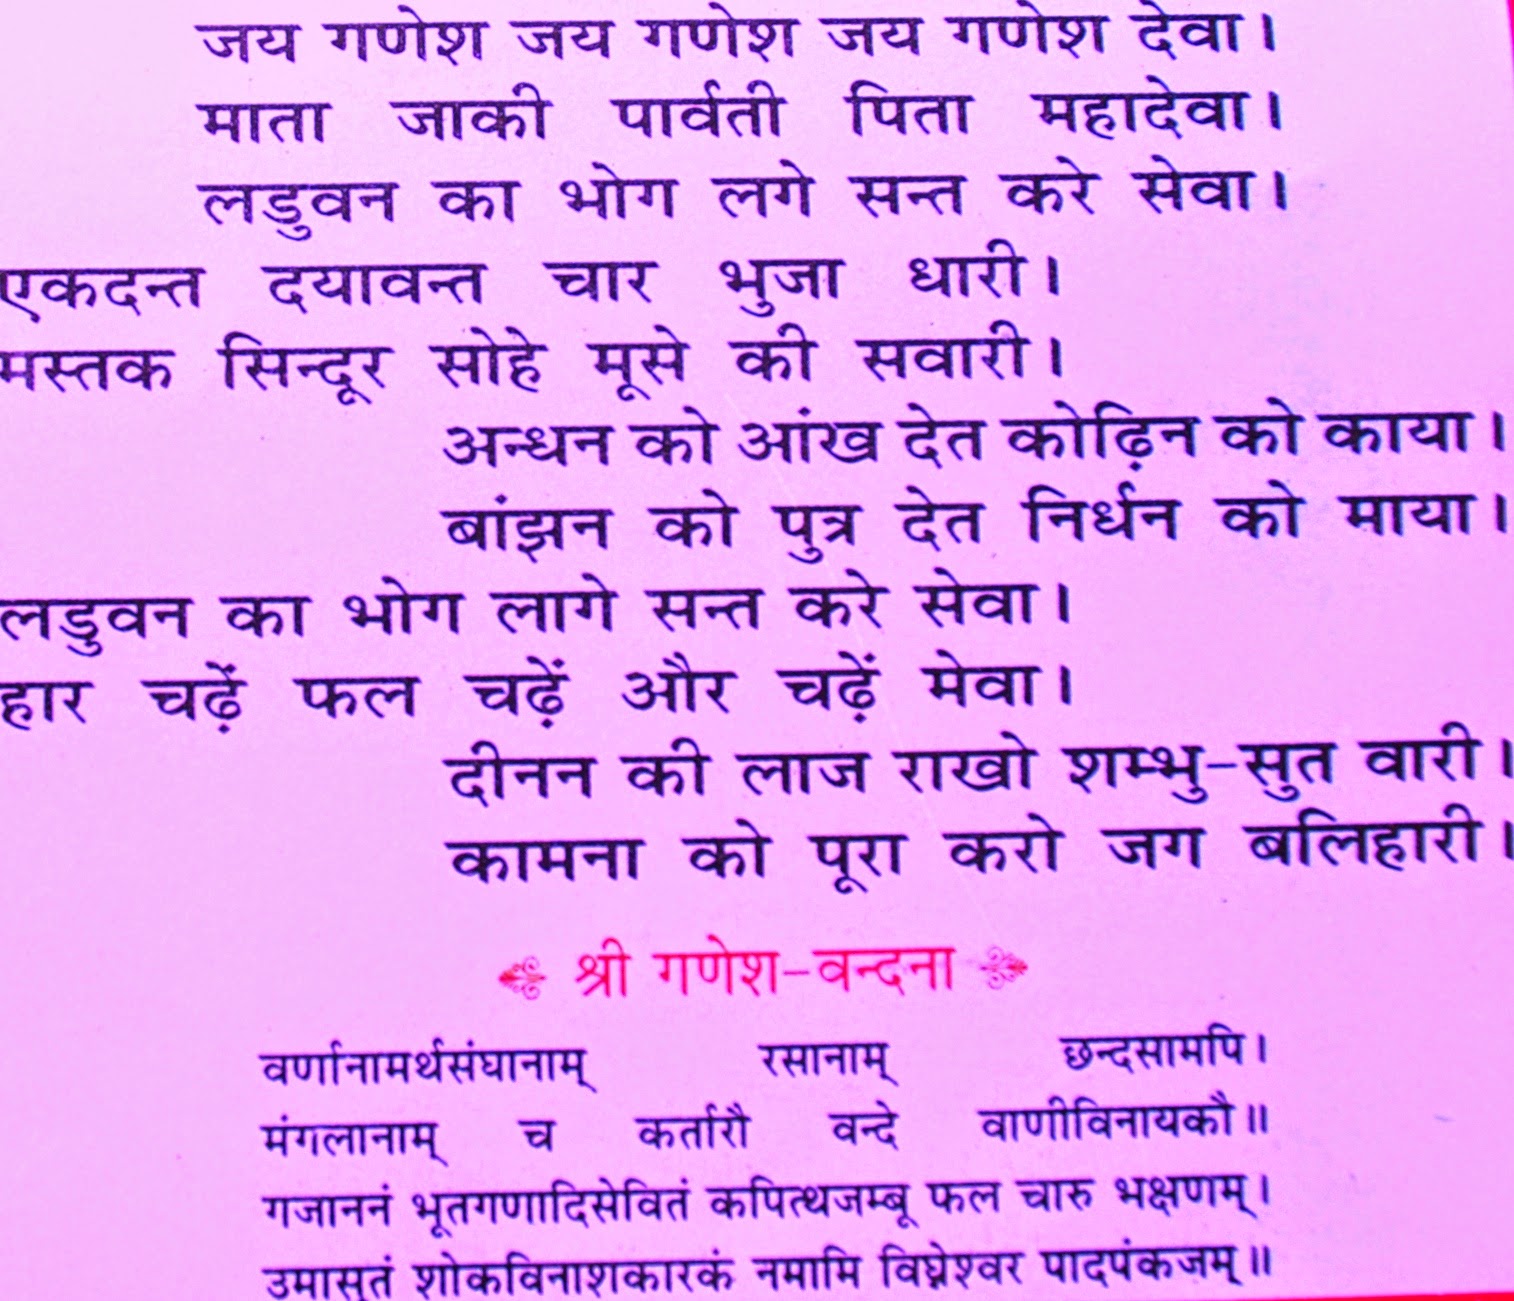 जय गणेश जय गणेश जय गणेश देवा।
माता जाकी पार्वती पिता महादेवा।
लडुवन का भोग लगे सन्त करे सेवा।
एकदन्त दयावन्त चार भुजा धारी।
मस्तक सिन्दूर सोहे मूसे की सवारी।
अन्धन को आंख देत कोढ़िन को काया।
बांझन को पुत्र देत निर्धन को माया।
लड्डुवन का भोग लागे सन्त करे सेवा।
हार चढ़ें फल चढ़ें और चढ़ें मेवा।
दीनन की लाज राखो शम्भु-सुत वारी।
कामना को पूरा करो जग बलिहारी।
श्री गणेश-वन्दना
वर्णानामर्थसंघानाम् रसानाम् छन्दसामपि।
मंगलानाम् च कर्तारौ वन्दे वाणीविनायकौ॥
गजाननं भूतगणादिसेवितं कपित्थजम्बू फल चारु भक्षणम्।
उमासुतं शोकविनाशकारकं नमामि विघ्नेश्वर पादपंकजम्॥